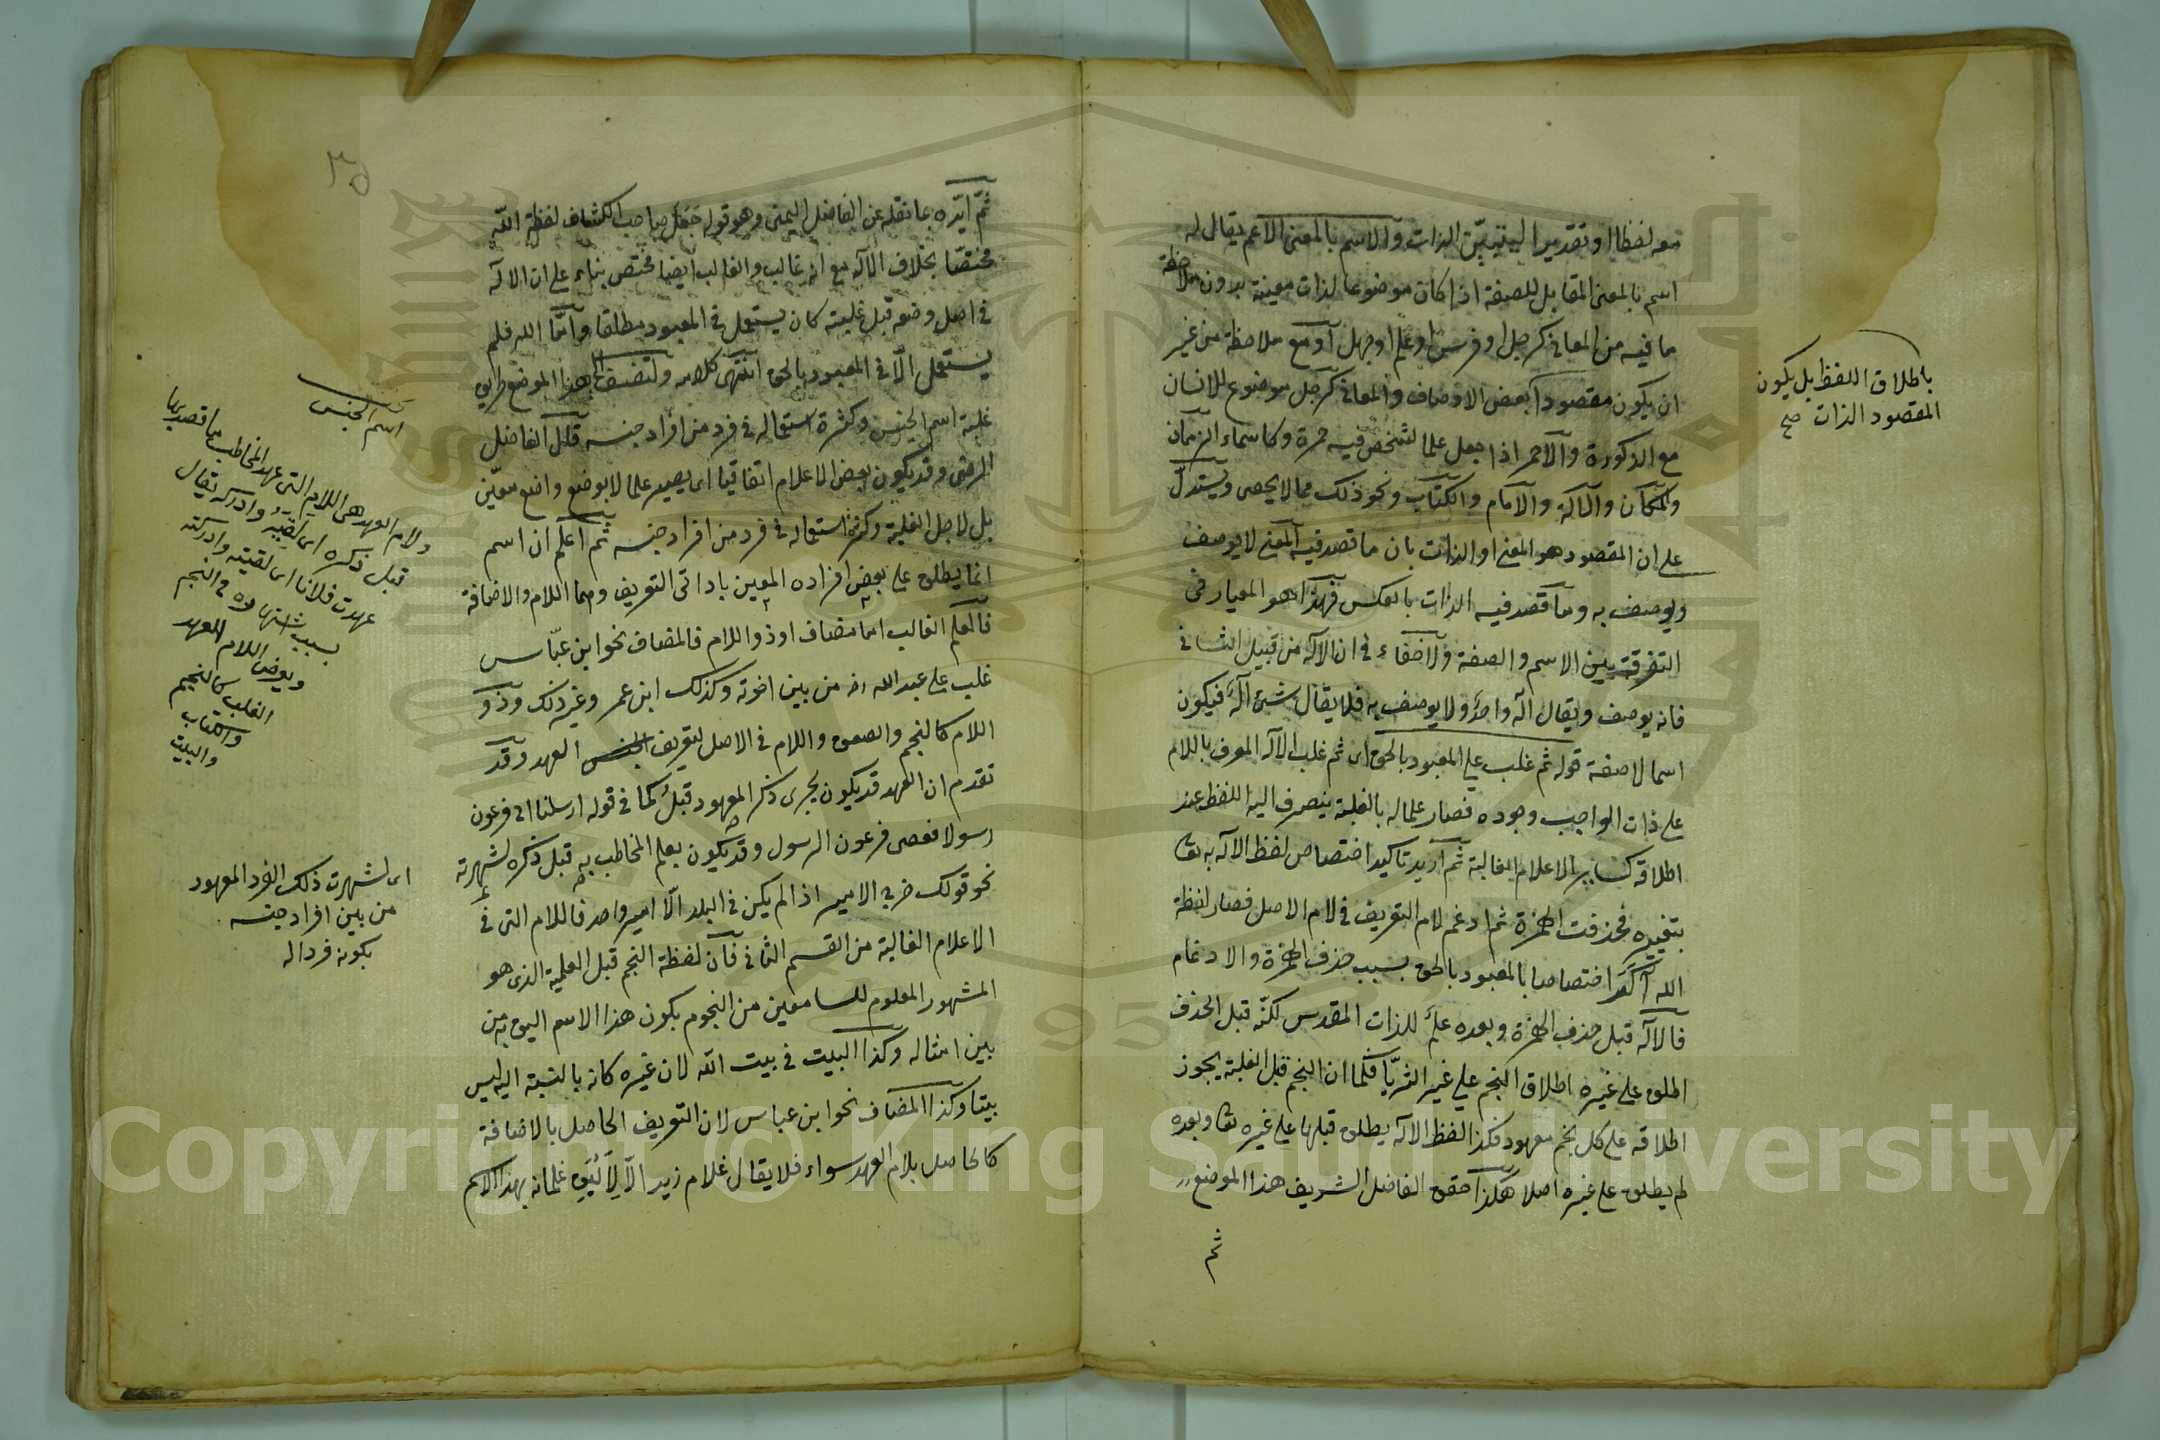 معه لفظا او تقديرا ليتبين الذات والاسم بالمعنى الاعم يقال له
اسم بالمعنى المقابل للصفة اذا كان موضوعا لذات معينة بدون ملاحظة
ما فيه من المعانى كرجل او فرس او علم او جهل او مع ملاحظة من غير
ان يكون مقصودا بعض الاوصاف والمعانى كرجل موضوع للانسان
مع الذكورة والاحمر اذا جعل علما لشخص فيه حمرة وكاسماء الزمان
والمكان والآلة والامام والكتاب ونحو ذلك مما لا يحصى ويستدل
على ان المقصود هو المعنى او الذات بان ما قصد فيه المعنى لا يوصف
ويوصف به وما قصد فيه الذات بالعكس فهذا هو المعيار فى
التفرقة بين الاسم والصفة ولا خفاء فى ان الاله من قبيل الثانى
فانه يوصف ويقال اله واحد ولا يوصف به فلا يقال شئ اله فيكون
اسما لا صفة قوله ثم غلب على المعبود بالحق اى ثم غلب الاله المعرف باللام
على ذات الواجب وجوده فصار علما له بالغلبة ينصرف اليه اللفظ عند
اطلاقه كسائر الاعلام الغالبة ثم اريد تاكيد اختصاص لفظ الاله به تعا
بتغييره فحذفت الهمزة ثم ادغم لام التعريف فى لام الاصل فصار لفظة
الله آكد اختصاصا بالمعبود بالحق بسبب حذف الهمزة والادغام
فالاله قبل حذف الهمزة وبعده علم للذات المقدس لكنه قبل الحذف
اطلق على غيره اطلاق النجم على غير الثريا فكما ان النجم قبل الغلبة يجوز
اطلاقه على كل نجم معهود فكذا لفظ الاله يطلق قبلها على غيره تعا وبعده
لم يطلق على غيره اصلا هكذا حقق الفاضل الشريف هذا الموضع
ثم
باطلاق اللفظ بل يكون
المقصود الذات صح
ثم ايده بما نقله عن الفاضل اليمنى وهو قوله جعل صاحب الكشاف لفظة الله
مختصا بخلاف الاله مع انه غالب والغالب ايضا مختص بناء على ان الاله
فى اصل وضعه قبل غلبته كان يستعمل فى المعبود مطلقا واما الله فلم
يستعمل الا فى المعبود بالحق انتهى كلامه ولتضيف الى هذا الموضع طريق
غلبة اسم الجنس وكثرة استعماله فى فرد من افراد جنسه قال الفاضل
الرضى وقد يكون بعض الاعلام اتفاقيا اى يصير علما لا بوضع واضع معين
بل لاجل الغلبة وكثرة استعماله فى فرد من افراد جنسه ثم اعلم ان اسم
انما يطلق على بعض افراده المعين باداتى التعريف وهما اللام والاضافة
فالعلم الغالب اما مضاف او ذو اللام فالمضاف نحو ابن عباس
غلب على عبد الله رضه من بين اخوته وكذلك ابن عمر وغير ذلك وذو
اللام كالنجم والصعق واللام فى الاصل لتعريف العهد وقد
تقدم ان العهد قد يكون بجرى ذكر المعهود قبل كما فى قوله ارسلنا الى فرعون
رسولا فعصى فرعون الرسول وقد يكون بعلم المخاطب به قبل ذكره لشهرته
نحو قولك خرج الامير اذا لم يكن فى البلد الا امير واحد فاللام التى فى
الاعلام الغالبة من القسم الثانى فان لفظة النجم قبل العلمية الذى هو
المشهور المعلوم للسامعين من النجوم بكون هذا الاسم اليق به من
بين امثاله وكذا البيت فى بيت الله لان غيره كانه بالنسبة اليه ليس
بيتا وكذا المضاف نحو ابن عباس لان التعريف الحاصل بالاضافة
كالحاصل بلام العهد سواء فلا يقال غلام زيد الا لاليق غلمانه بهذا الاسم
اسم الجنس
ولام العهد هى اللام التى عهد المخاطب ما قصد بها
قبل ذكره اى لقيه وادركه يقال
عهدت فلانا اى لقيته وادركته
بسبب اشتهاره فى النجم
ويعوض اللام العهد
الغلب كالنجم
والكتاب
والبيت
اى لشهرت ذلك الفرد المعهود
من بين افراد جنسه
بكونه فردا له
Copyright © King Saud University
1957